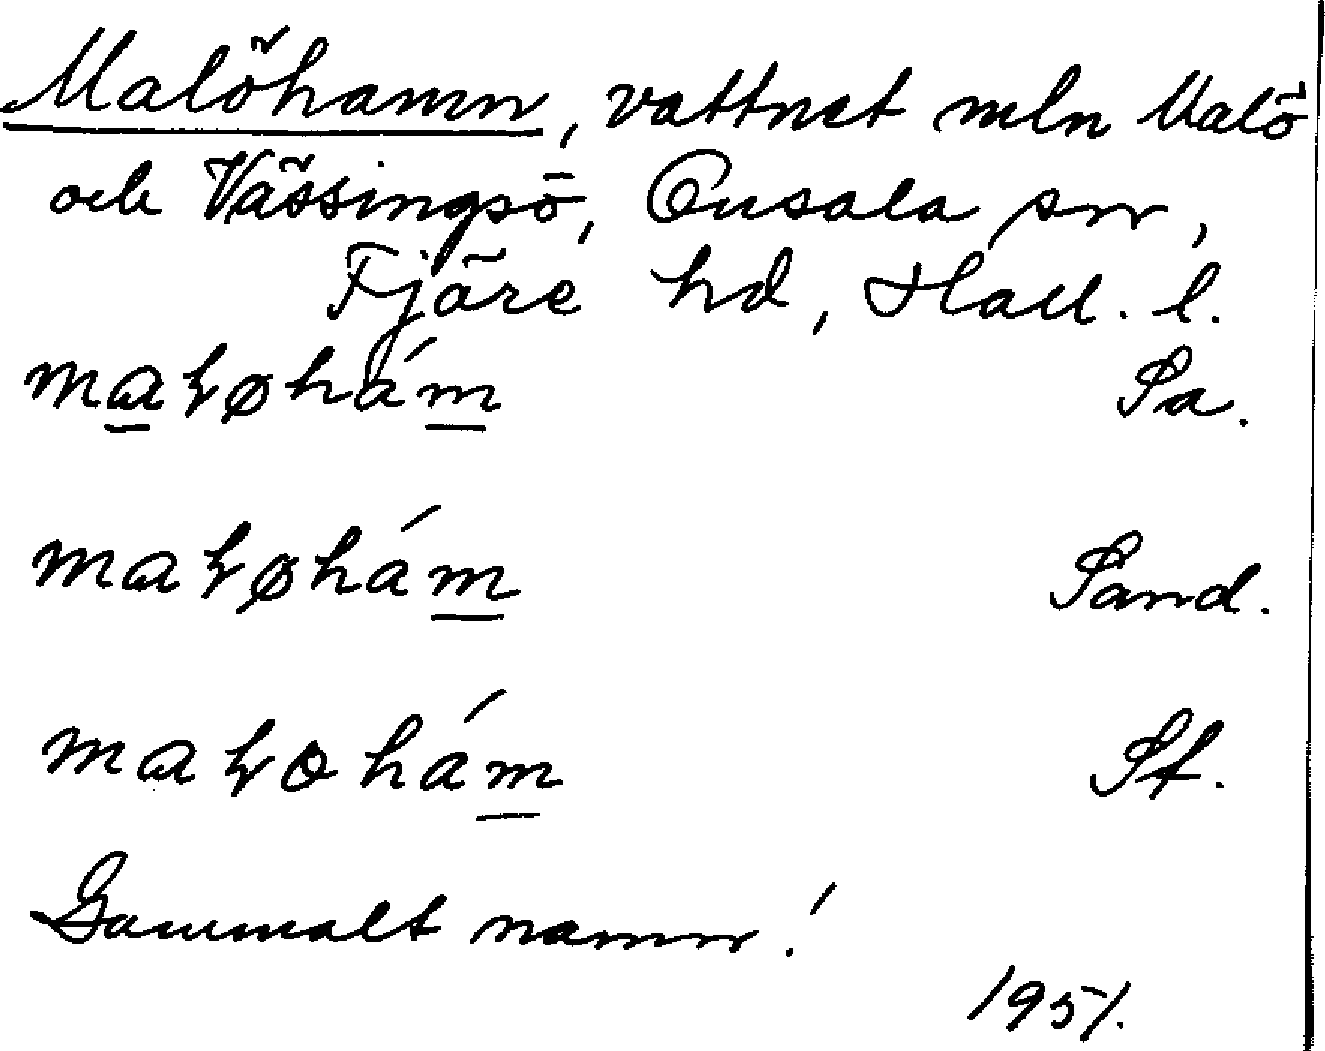 Malöhamn, vattnet mln Malö
och Vässingsö, Onsala sn,
Fjäre hd, Hall. l.
maɽøhám Sa.
maɽøhám Sand.
maɽohám Sf.
Gammalt namn!
1951.